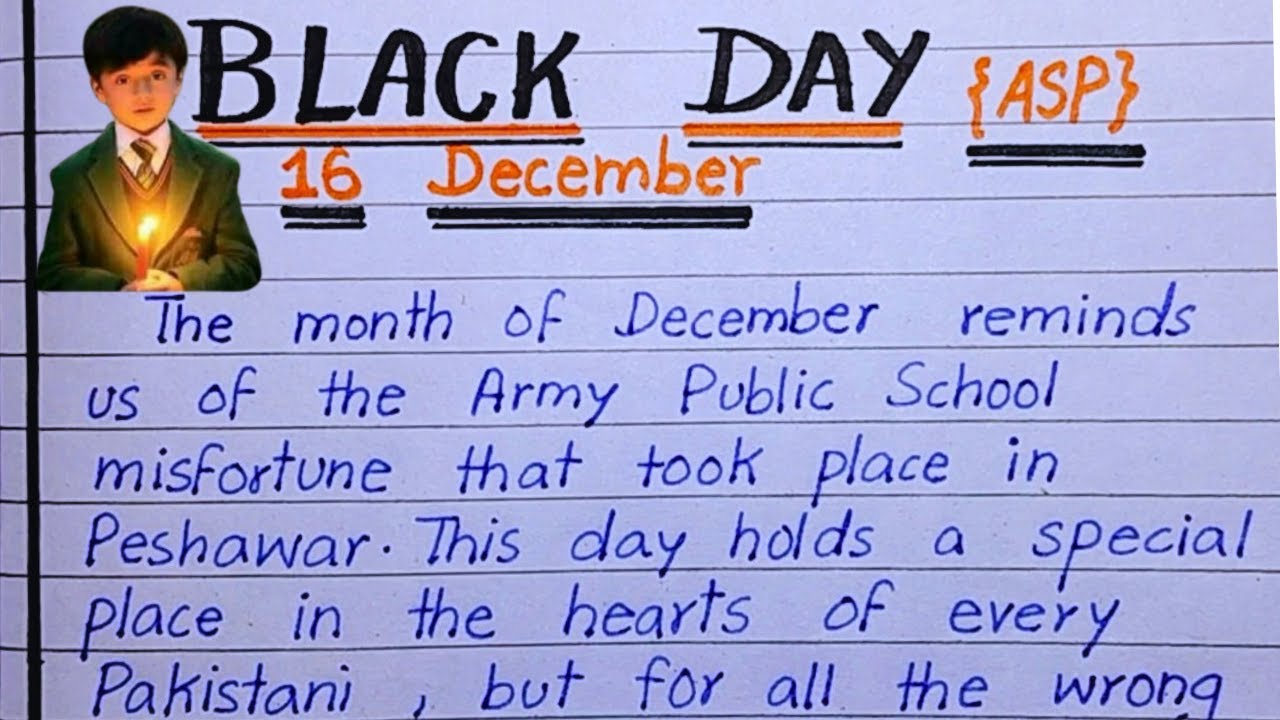 BLACK DAY {ASP}
16 December
The month of December reminds
us of the Army Public School
misfortune that took place in
Peshawar. This day holds a special
place in the hearts of every
Pakistani, but for all the wrong